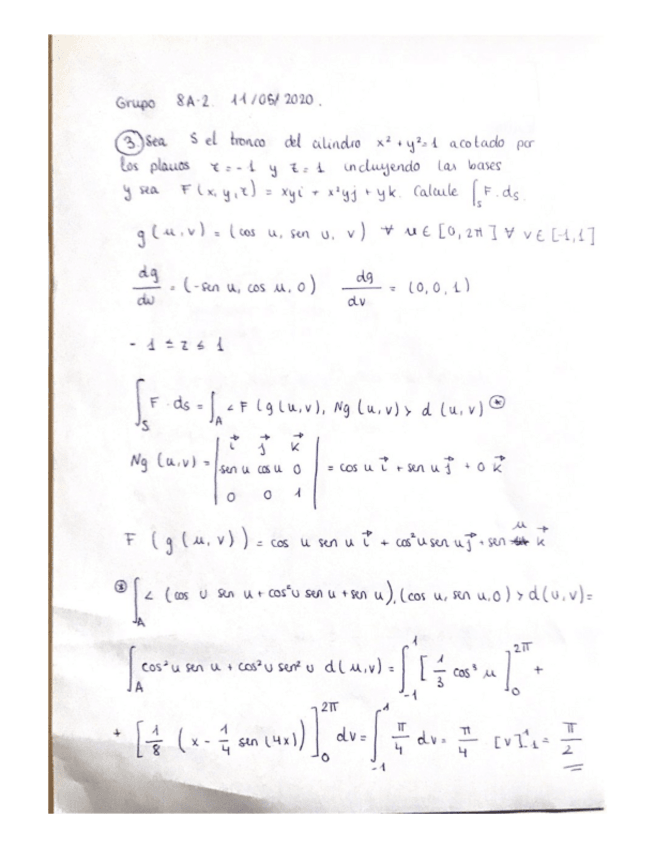 Grupo 8A-2. 11/05/2020.
③ Sea S el tronco del cilindro x² + y² = 1 acotado por
los planos z = -1 y z = 1 incluyendo las bases
y sea F(x, y, z) = xyi + x²yj + yk. Calcule ∫_S F. ds.
g(u,v) = (cos u, sen u, v) ∀ u ∈ [0, 2π] ∀ v ∈ [-1,1]
dg/du = (-sen u, cos u, 0) dg/dv = (0, 0, 1)
- 1 ≤ z ≤ 1
∫_S F · ds = ∫_A < F(g(u,v), Ng(u,v) > d(u,v) ⊛
Ng(u,v) = | i⃗ j⃗ k⃗ |
| -sen u cos u 0 | = cos u i⃗ + sen u j⃗ + 0 k⃗
| 0 0 1 |
F(g(u,v)) = cos u sen u i⃗ + cos²u sen u j⃗ + sen u k⃗
⊛ ∫_A < (cos u sen u + cos²u sen u + sen u), (cos u, sen u, 0) > d(u,v) =
∫_A cos²u sen u + cos²u sen²u d(u,v) = ∫_{-1}^{1} [1/3 cos³ u]_0^{2π} +
+ [1/8 (x - 1/4 sen(4x))]_0^{2π} dv = ∫_{-1}^{1} π/4 dv = π/4 [v]_{-1}^{1} = π/2